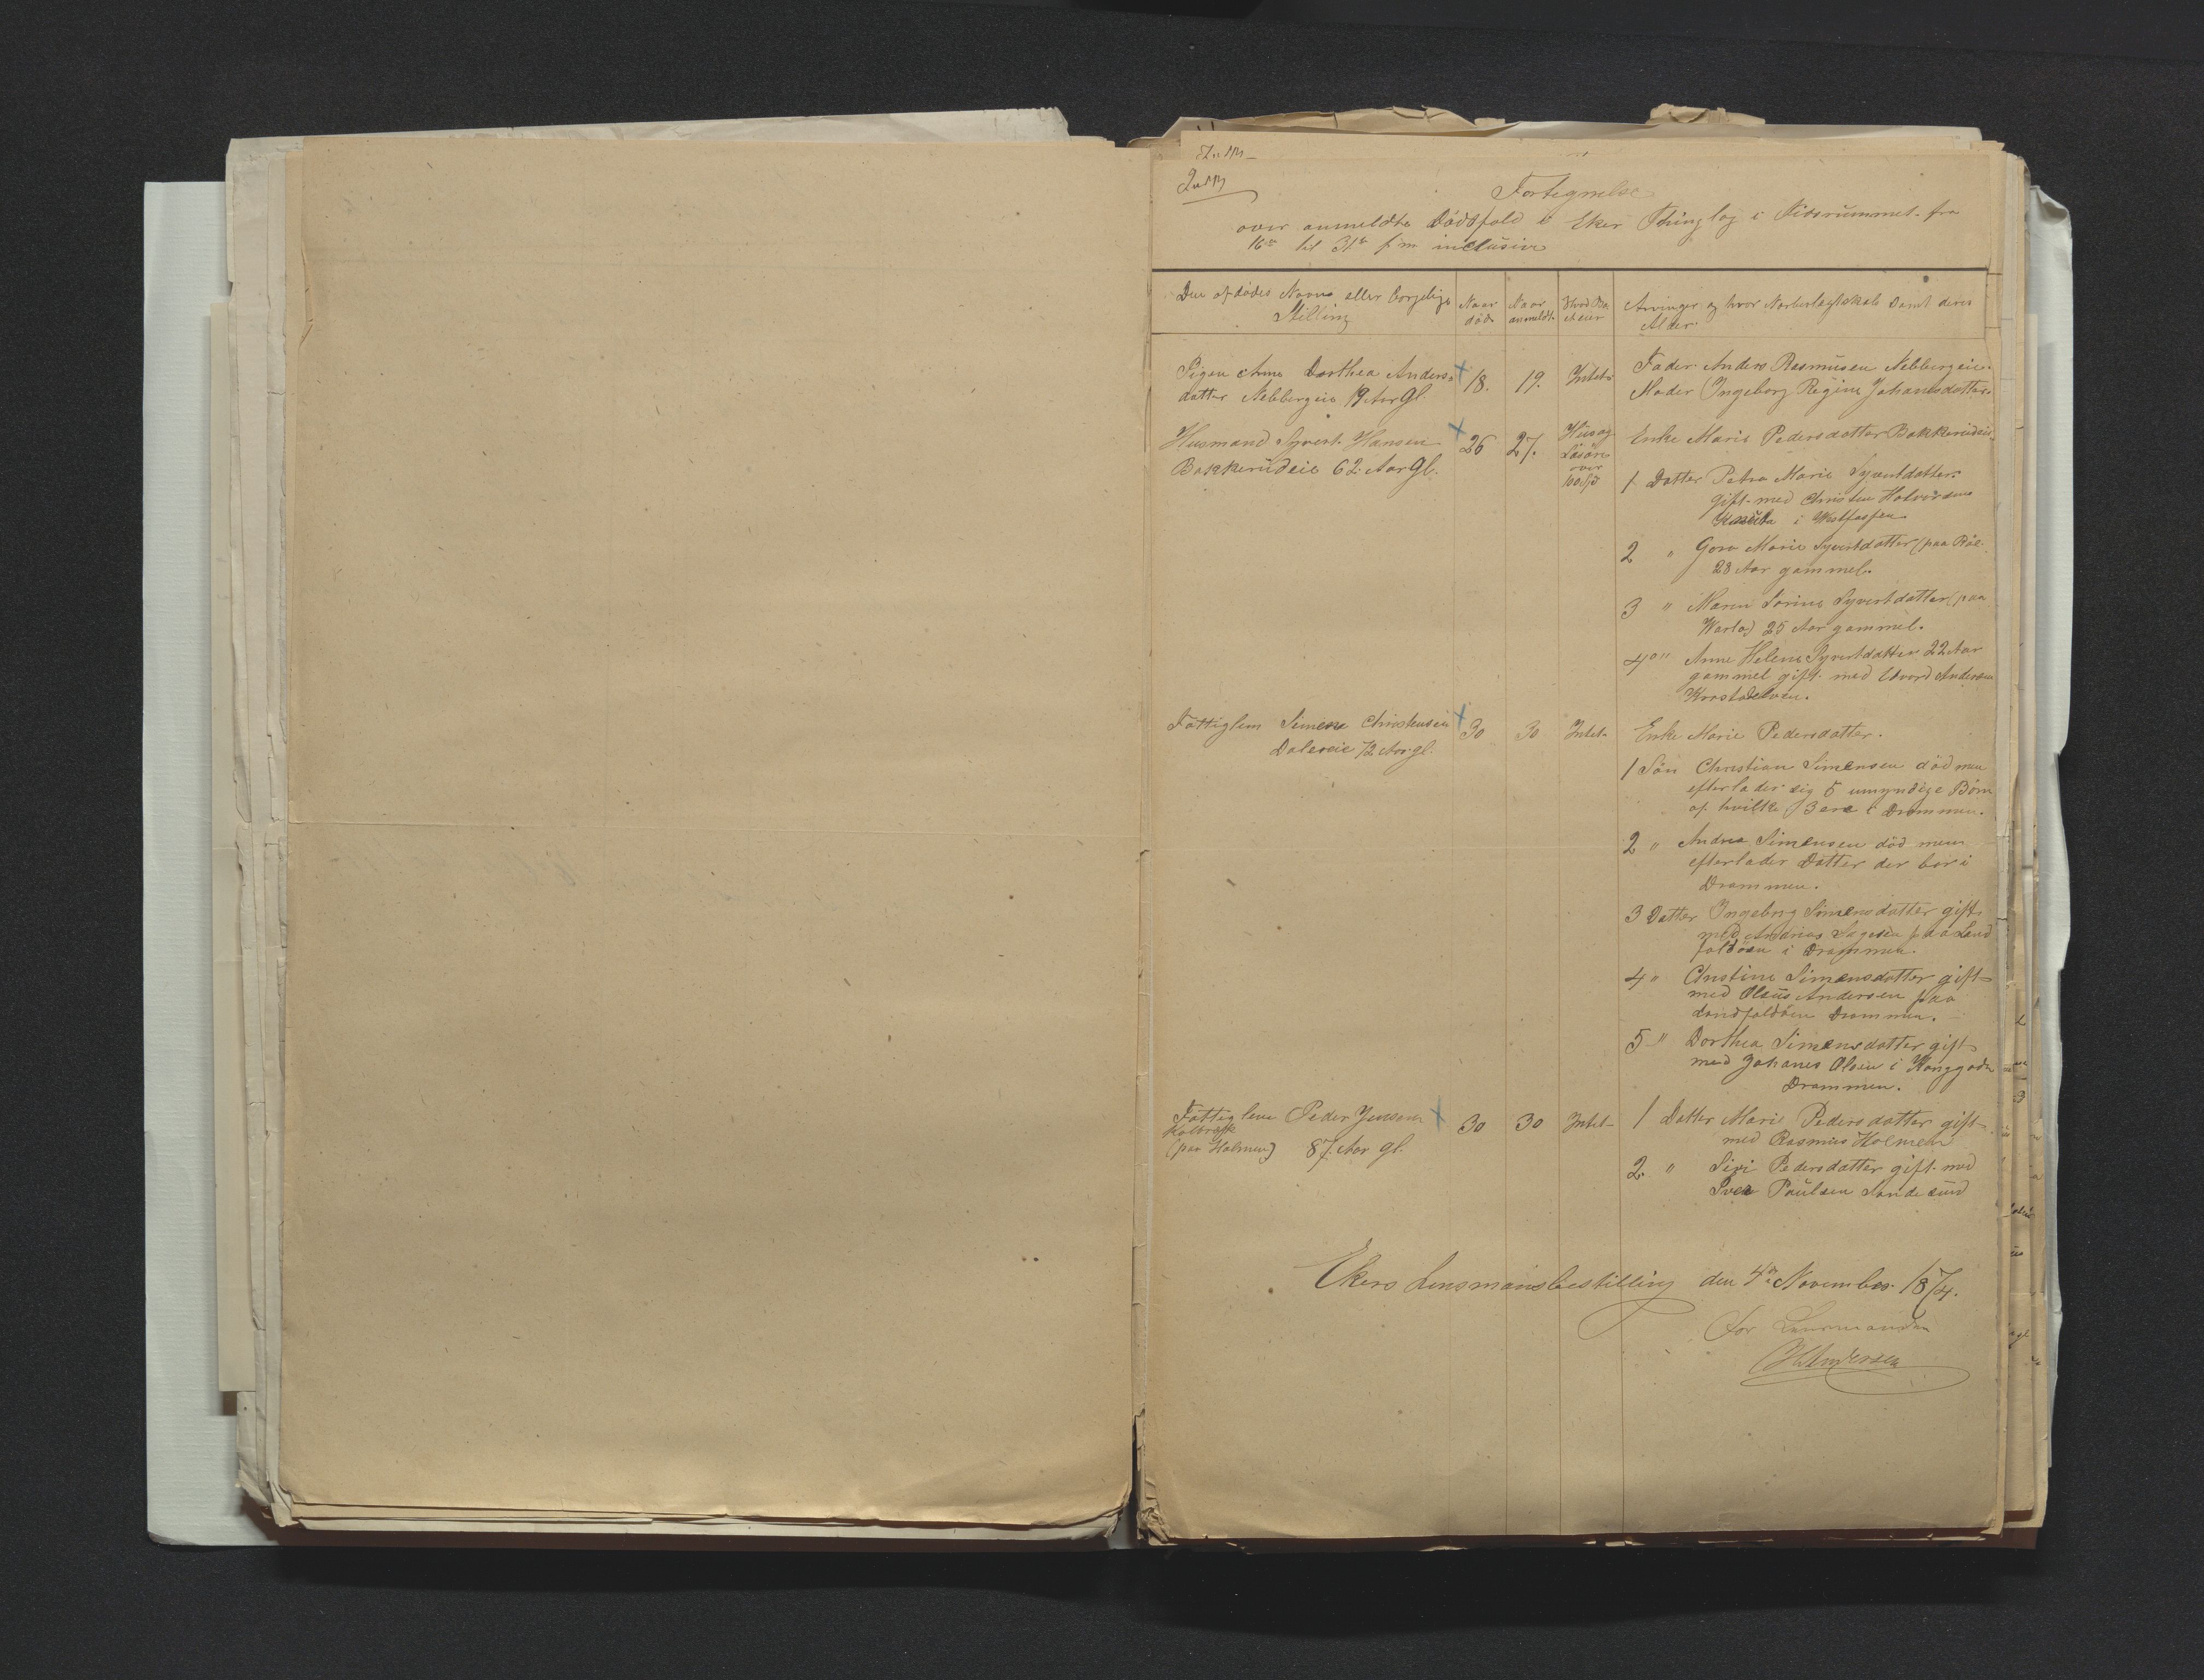 Fortegnelse
over anmeldte Dödsfald i Eker Thinglag i Tidsrummet fra
16de til 31te f.m. inclusive
Den afdödes Navn eller borgelige
Stilling
Naar
död
Naar
anmeldt
Hvad Bo
et eier
Arvinger og hvor Nærbeslægtskab samt deres
Alder.
Pigen Anne Dorthea Anders-
datter Nebbergeie 19 Aar Gl.
18.
19.
Intet
Fader Anders Rasmusen Nebbergeie.
Moder Ingeborg Regine Johanesdatter.
Husmand Syvert Hansen
Bakkerudeie 62 Aar Gl.
26
27.
Hus og
Lösöre
over
100 Spd
Enke Marie Pedersdatter Bakkerudeie.
1 Datter Petra Marie Syvertdatter
gift med Christen Halvorsens
i Westfossen
2 " Gora Marie Syvertdatter (paa
28 Aar gammel.
3 " Maren Sorine Syvertdatter (paa
Warlo) 25 Aar gammel.
4 " Anne Helene Syvertdatter 22 Aar
gammel gift med Edvard Andersen
Fattiglem Simen Christensen
Daleseie 72 Aar gl.
30
30
Intet
Enke Marie Pedersdatter.
1 Sön Christian Simensen död men
efterlader sig 5 umyndige Börn
af hvilke 3 ere i Drammen.
2 " Andrea Simensen död men
efterlader Datter der bor i
Drammen.
3 Datter Ingeborg Simensdatter gift
med Andrias paa Land
faldöen i Drammen.
4 " Christine Simensdatter gift
med Olaus Andersen paa
Landfaldöen Drammen.
5 " Dorthea Simensdatter gift
med Johanes Olsen i Konggada
Drammen.
Fattiglem Peder Jensen
Kolbræk
(paa Holmen) 87. Aar gl.
30
30
Intet
1 Datter Marie Pedersdatter gift
med Rasmus Holmen
2. " Siri Pedersdatter gift med
Iver Paulsen Sandesund
Ekers Lensmansbestilling den 4de November 1874.
for Lensmanden
H Andersen